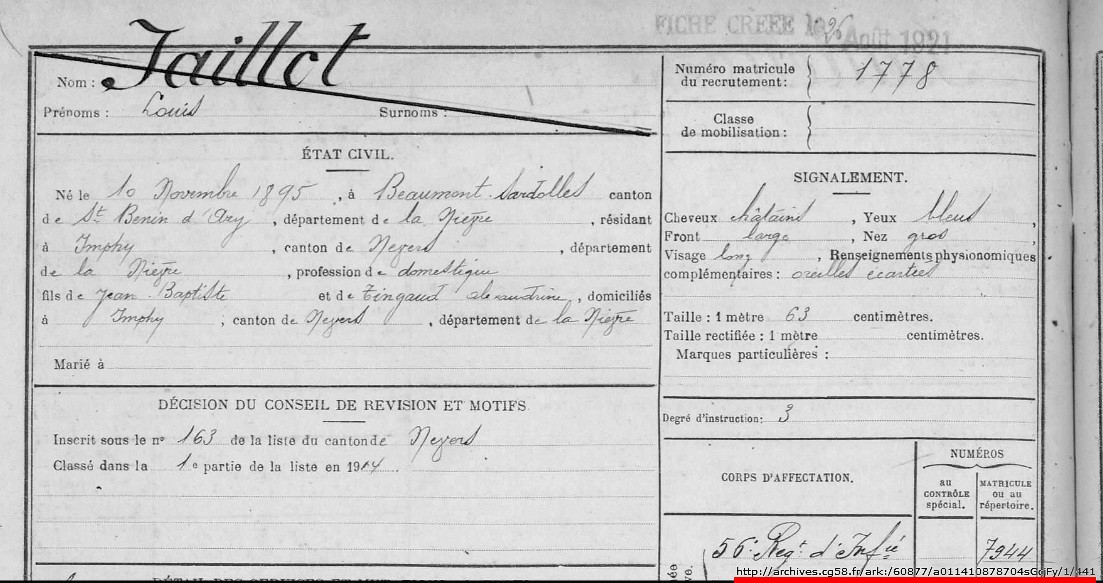 FICHE CRÉÉE le 26 Août 1921
Nom : Jaillot
Prénoms : Louis Surnoms :
Numéro matricule du recrutement : 1778
Classe de mobilisation :
ÉTAT CIVIL.
Né le 10 Novembre 1895, à Beaumont Sardolles canton
de St Benin d'Azy, département de la Nièvre, résidant
à Imphy, canton de Nevers, département
de la Nièvre, profession de domestique
fils de Jean Baptiste et de Tingaud Alexandrine, domiciliés
à Imphy, canton de Nevers, département de la Nièvre
Marié à
DÉCISION DU CONSEIL DE REVISION ET MOTIFS
Inscrit sous le no 163 de la liste du canton de Nevers
Classé dans la 1e partie de la liste en 1914
SIGNALEMENT.
Cheveux châtains, Yeux bleus,
Front large, Nez gros
Visage long, Renseignements physionomiques
complémentaires : oreilles écartées
Taille : 1 mètre 63 centimètres.
Taille rectifiée : 1 mètre centimètres.
Marques particulières :
Degré d'instruction : 3
CORPS D'AFFECTATION.
NUMÉROS
au CONTRÔLE spécial.
MATRICULE ou au répertoire.
56e Regt d'Infie 7944
http://archives.cg58.fr/ark:/60877/a011410878704sGojFy/1/441